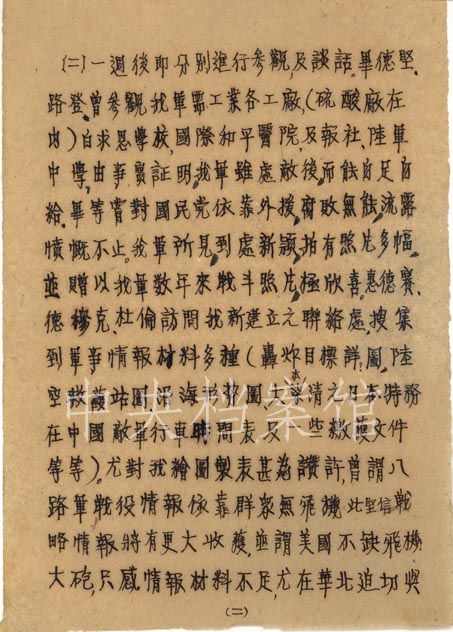 (二)一週後即分别進行參觀,及談話。畢德堅、
路登,曾參觀我軍需工業各工廠,(硫酸廠在
内)白求恩學校,國際和平醫院,及報社、陸軍
中學,由事實証明,我軍雖處敵後而能自足自
給。畢等嘗對國民党依靠外援,腐敗無能,流露
憤慨不止。我軍所見到處新穎,拍有照片多幅,
並贈以我軍数年來戰斗照片,極欣喜。惠德賽、
德穆克、杜倫訪問我新建立之聯絡處,搜集
到軍事情報材料多種(轟炸目標詳圖,陸
空救護站圖,
在中國敵軍行車時間表及一些繳獲文件
等等)。尤對我繪圖製表甚為讚許,曾謂八
路軍戰役情報依靠群衆無飛機,此堅信戰
略情報將有更大收獲,並謂美國不缺飛機
大砲,只感情報材料不足,尤在華北迫切與
(二)
中央档案馆